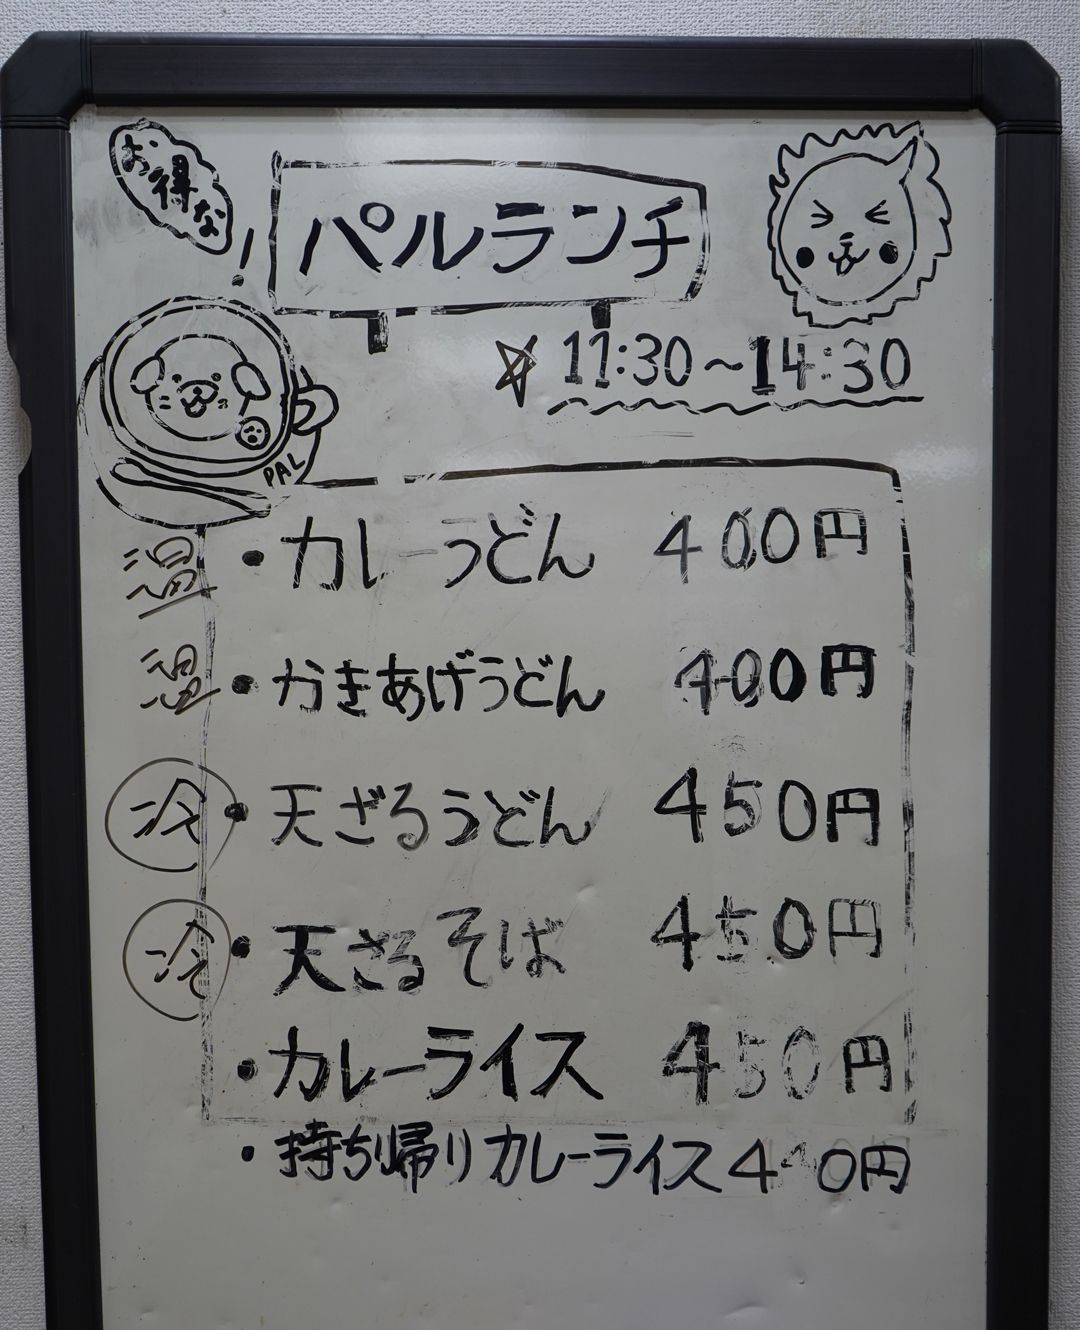 お得な!
パルランチ
☆ 11:30~14:30
PAL
温 ・カレーうどん 400円
温 ・かきあげうどん 400円
冷 ・天ざるうどん 450円
冷 ・天ざるそば 450円
・カレーライス 450円
・持ち帰りカレーライス